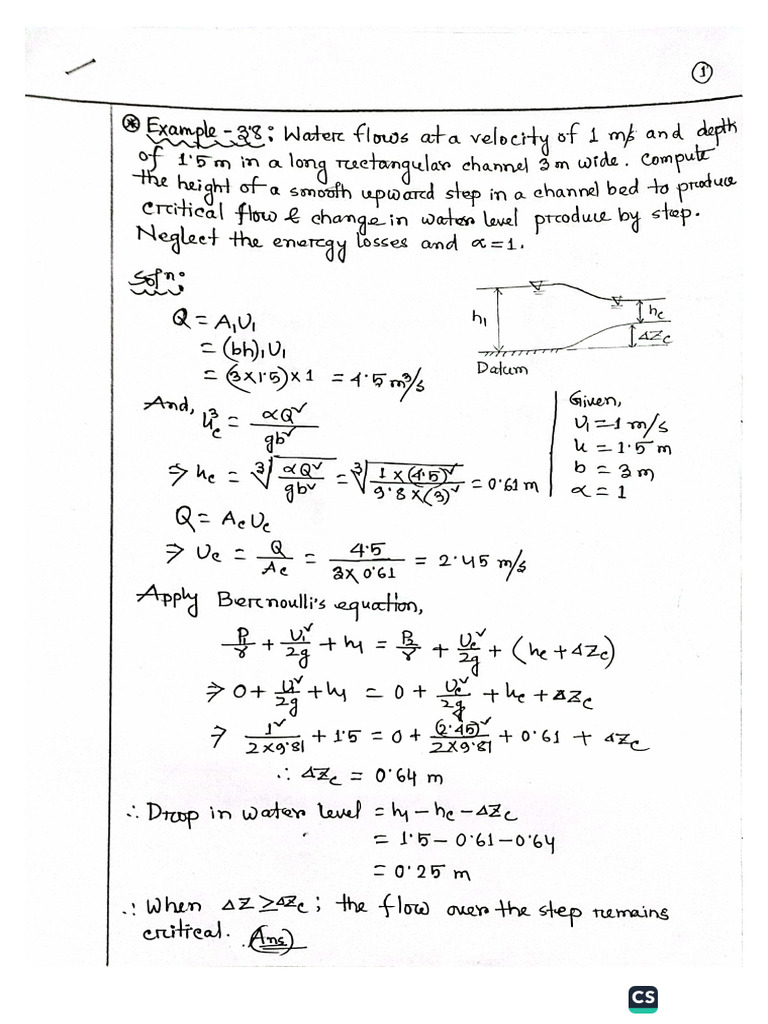 1
* Example - 3.8: Water flows at a velocity of 1 m/s and depth
of 1.5 m in a long rectangular channel 3 m wide. Compute
the height of a smooth upward step in a channel bed to produce
critical flow & change in water level produce by step.
Neglect the energy losses and α = 1.
Soln:
Q = A₁U₁
= (bh)₁U₁
= (3×1.5)×1 = 4.5 m³/s
h₁
hc
ΔZc
Datum
And, hc³ = αQ²/gb²
⇒ hc = ³√(αQ²/gb²) = ³√(1×(4.5)²/9.8×(3)²) = 0.61 m
Q = AcUc
⇒ Uc = Q/Ac = 4.5/3×0.61 = 2.45 m/s
Given,
U₁ = 1 m/s
h = 1.5 m
b = 3 m
α = 1
Apply Bernoulli's equation,
P₁/γ + U₁²/2g + h₁ = P₂/γ + Uc²/2g + (hc + ΔZc)
⇒ 0 + U₁²/2g + h₁ = 0 + Uc²/2g + hc + ΔZc
⇒ 1²/2×9.81 + 1.5 = 0 + (2.45)²/2×9.81 + 0.61 + ΔZc
∴ ΔZc = 0.64 m
∴ Drop in water level = h₁ - hc - ΔZc
= 1.5 - 0.61 - 0.64
= 0.25 m
∴ When ΔZ ≥ ΔZc; the flow over the step remains
critical. (Ans)
CS